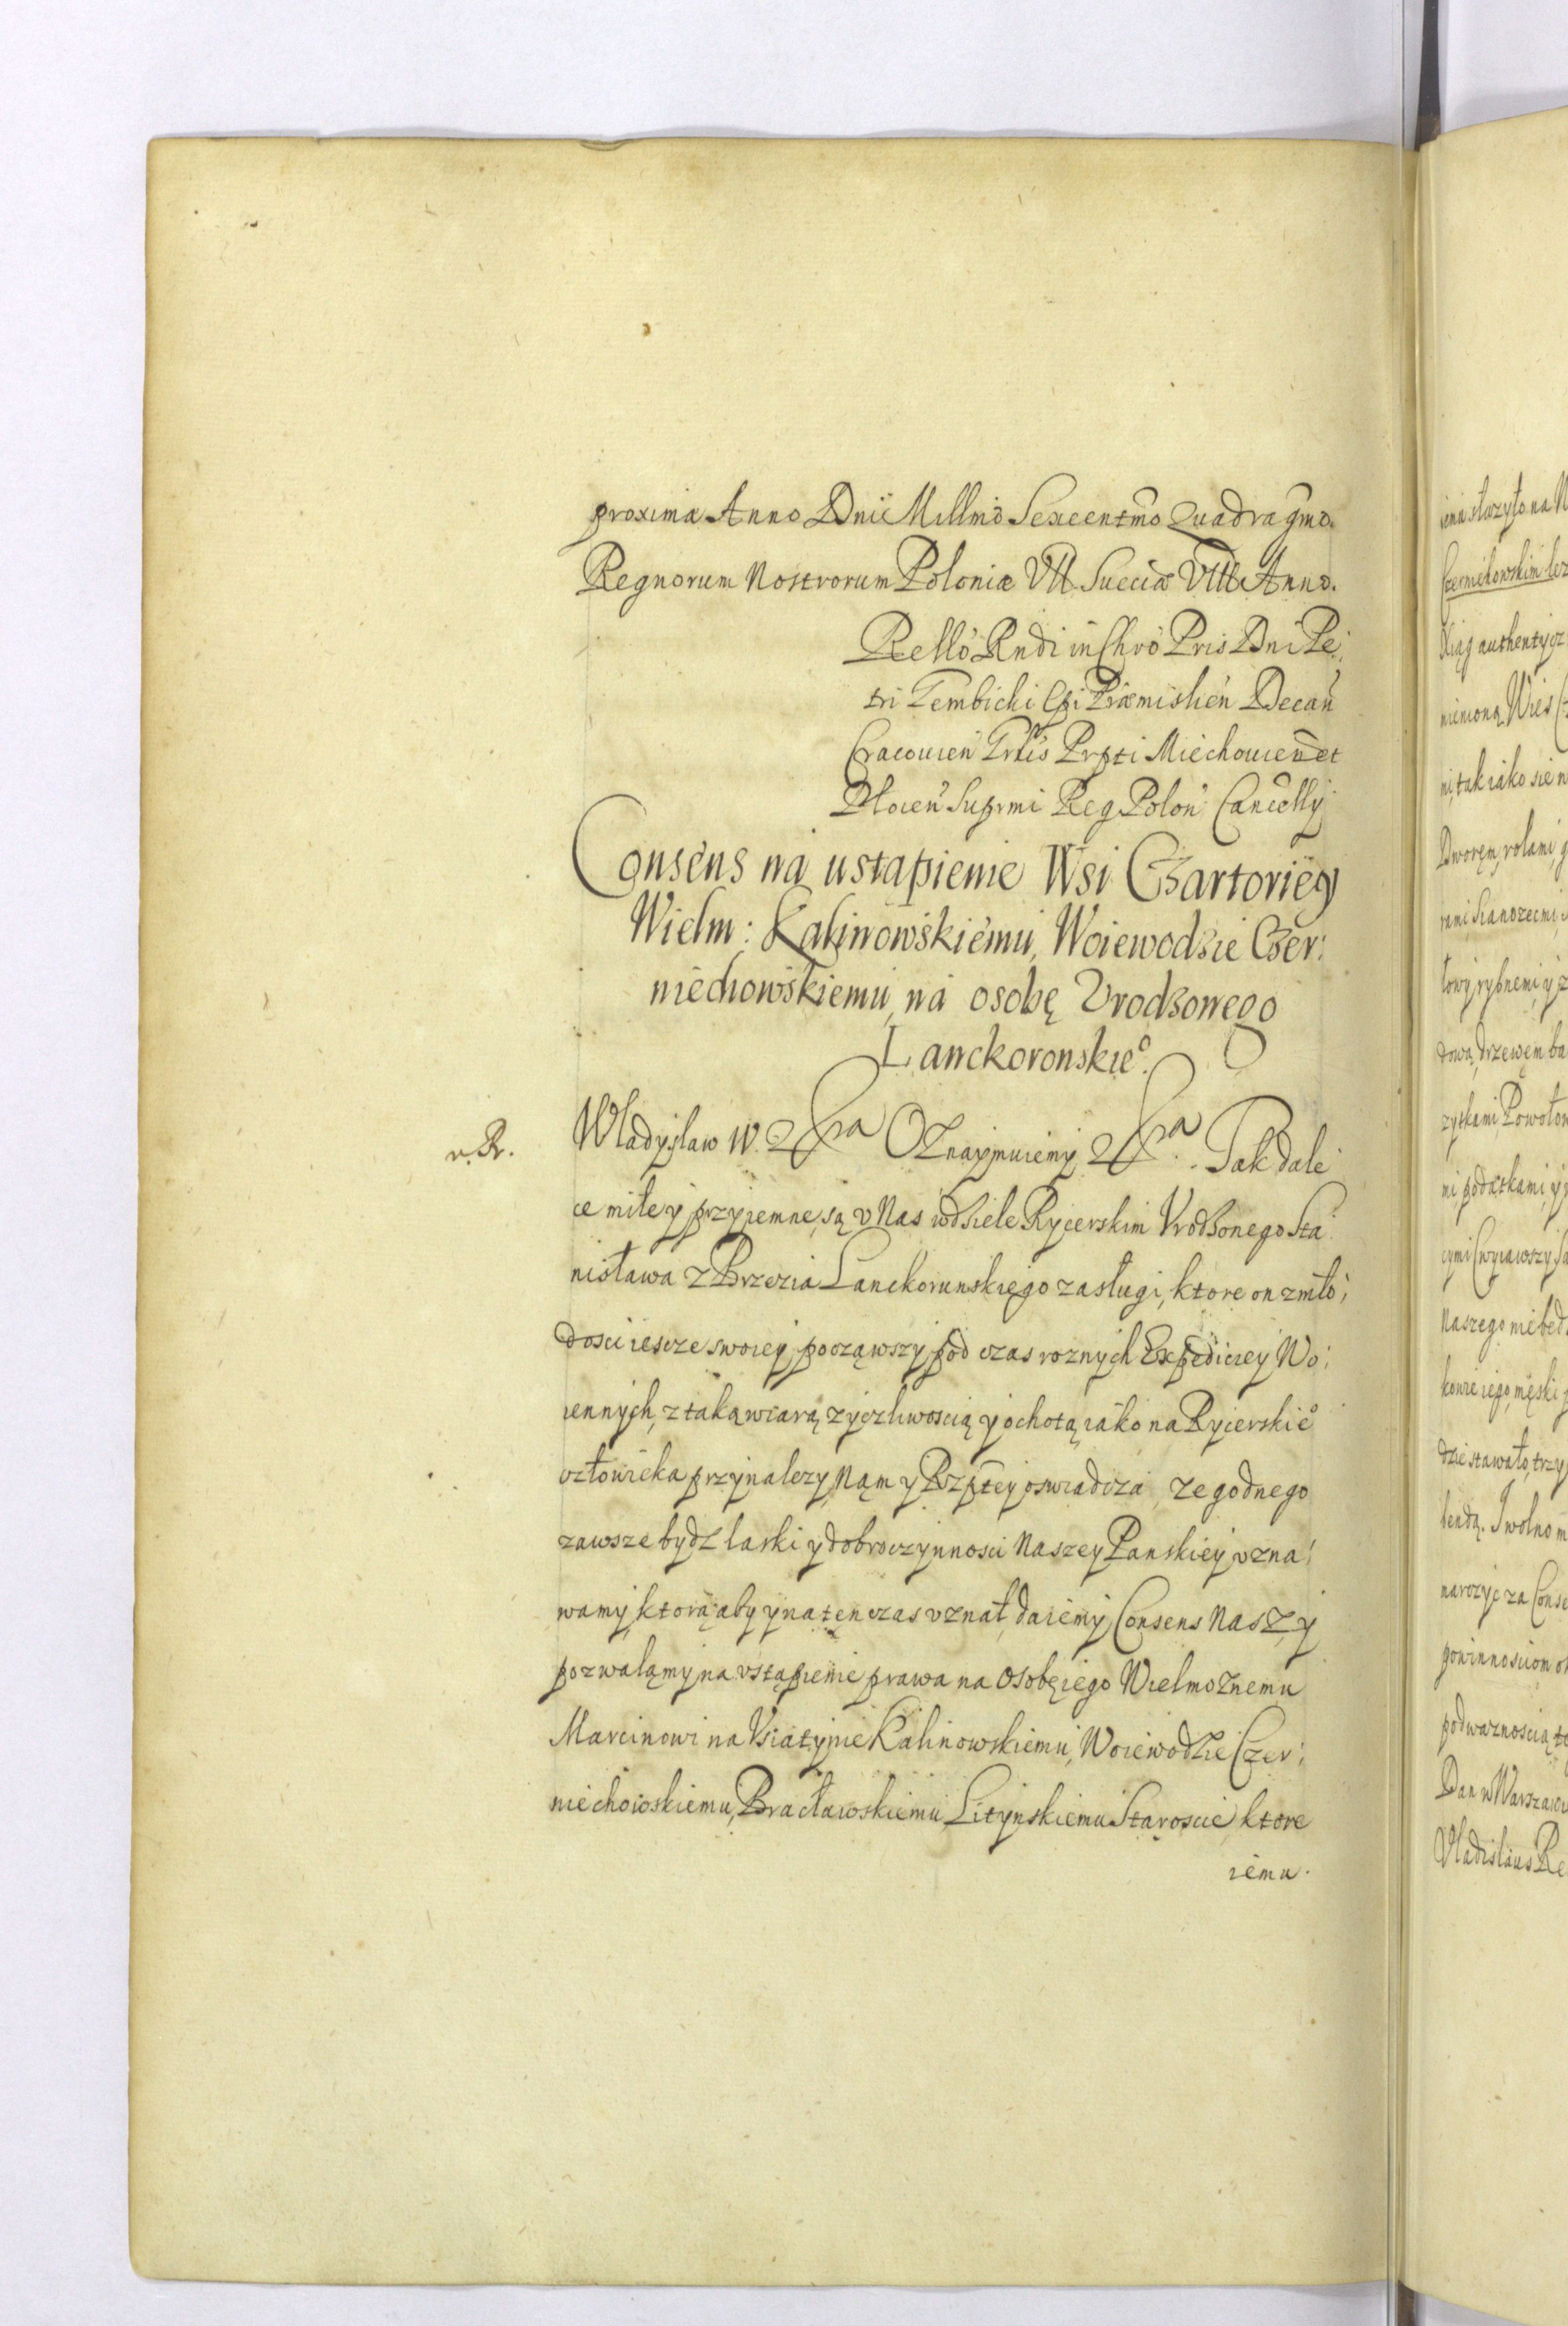 proxima Anno Dnii Millmo Sexcentmo Quadragmo.
Regnorum Nostrorum Poloniæ VII Sueciæ VIII Anno.
Rello Rndi in Chro Pris Dni Pe:
tri Gembicki Epi Præmislien Decan
Cracouien Prpti Miechouien et
Plocen Suprmi Reg Polon Cancelly
Consens na ustąpienie Wsi Czartoriey
Wielm: Kalinowskiemu, Woiewodzie Czer:
niechowskiemu, na osobę Vrodzonego
Lanckoronskieº.
n. R.
Władysław IV. &ra Oznaymuiemy &ra. Tak dale
ce miłe y przyiemne, są v Nas w dziele Rycerskim Vrodzonego Sta:
nisława z Brzezia Lanckorunskiego zasługi, ktore on z mło:
dosci iescze swoiey począwszy pod czas roznych Expediciey Wo:
iennych, z taką wiarą, zyczliwoscią y ochotą, iako na Rycerskieº
człowieka przynalezy, Nąm y Rzptey oswiadcza ze godnego
zawsze bydz laski y dobroczynnosci Naszey Panskiey vzna:
wamy, ktorą aby y na tęn czas vznał, daiemy Consens Nasz, y
pozwalamy na vstąpienie prawa na Osobę iego Wielmoznemu
Marcinowi na Vsiatynie Kalinowskiemu, Woiewodzie Czer:
niechowskiemu, Bracławskiemu, Lityńskiemu Staroscie, ktore
iemu.
Czernichowskim
Xiąg authentycz
mienioną Wies
ni, tak iáko sie n
Dworęm, rolami, g
dową, drzewęm ba
ni, podatkami, y
Naszego nie bed
dzie stawało, trzy
będą. I wolno m
narozyc za Conse
powinnosciom
podwaznoscią te
Dan w Warszaw
Vladislaus Re